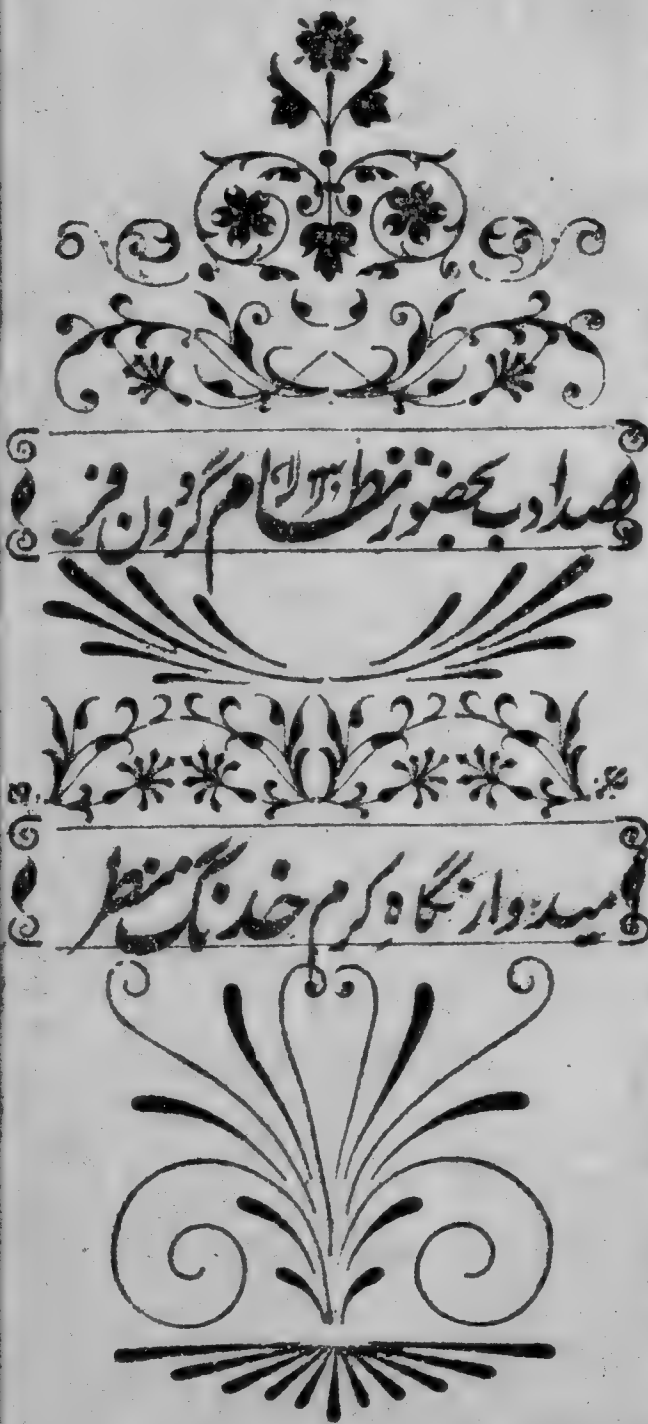 بصد ادب بحضور نظام گردون فر
امیدوار نگاہ کرم خدنگ نظر